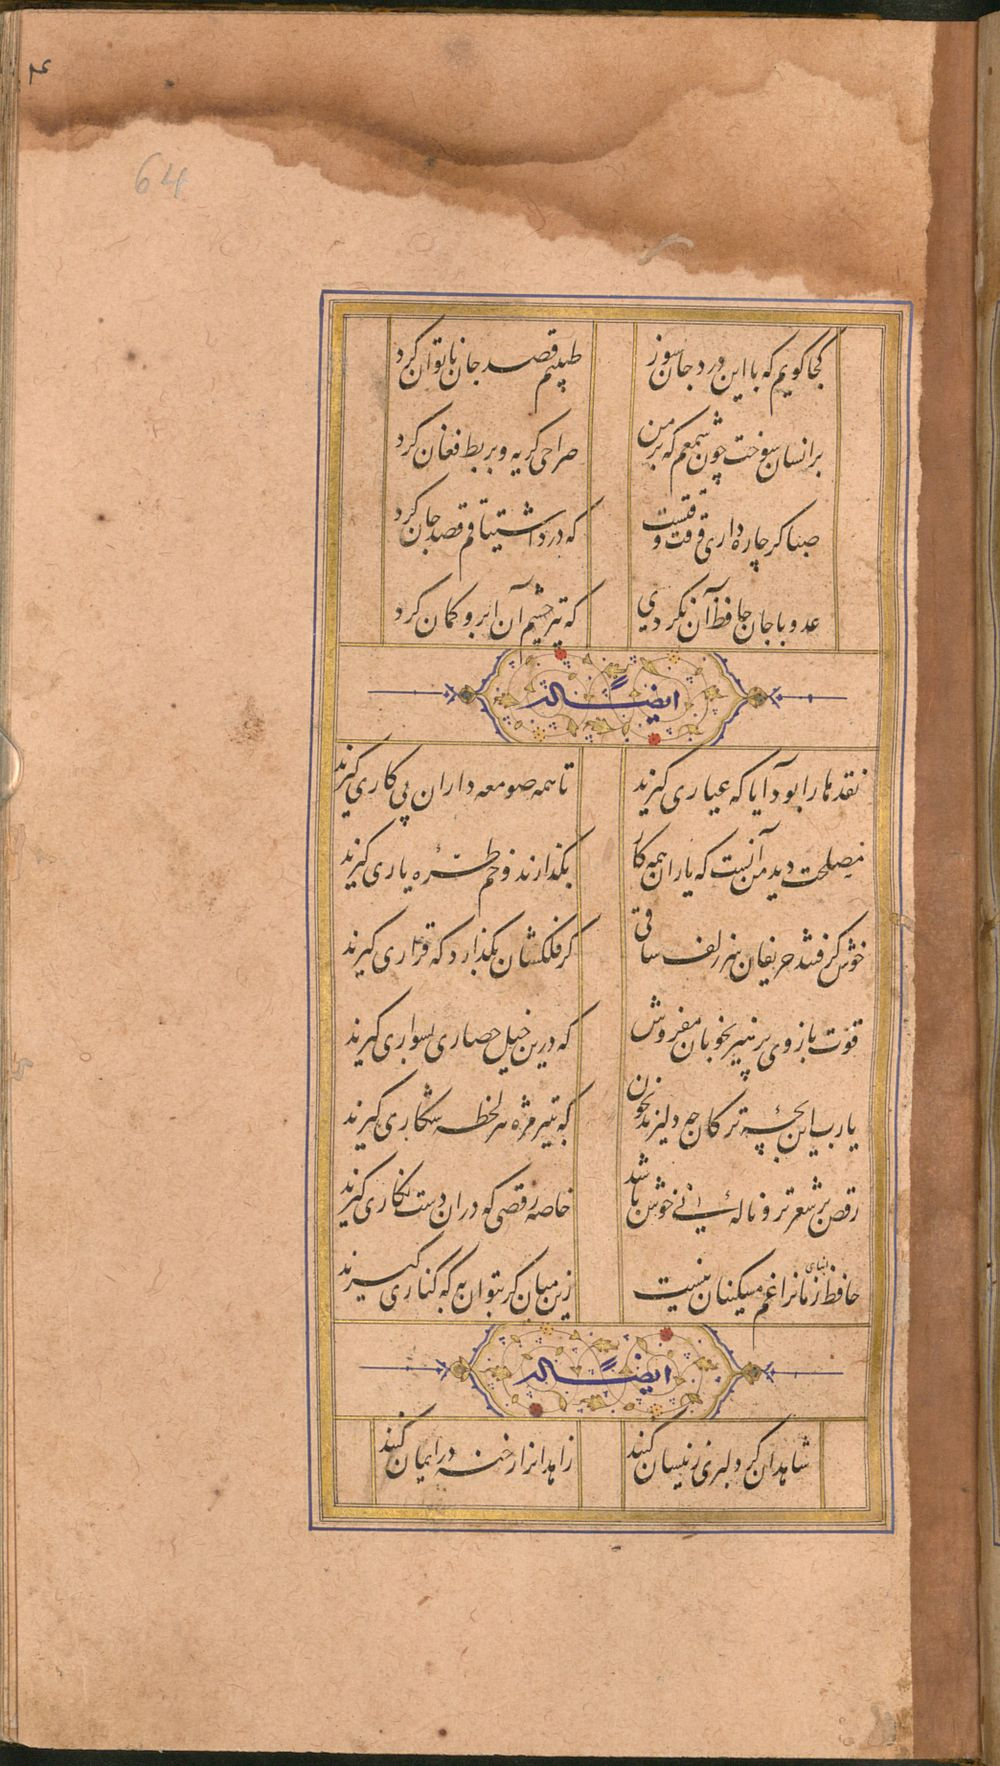 64
کجا کویم که با این درد جان سوز
طبیبم قصد جان ناتوان کرد
برانسان سوخت چون شمعم که بر من
صراحی کریه و بربط فغان کرد
صبا کر چاره داری وقت وقتست
که درد اشتیاقم قصد جان کرد
عدو با جان حافظ آن نکردی
که تیر چشم آن ابرو کمان کرد
ایضاً له
نقدها را بود آیا که عیاری کیرند
تا همه صومعه داران پی کاری کیرند
مصلحت دید من آنست که یاران همه کار
بکذارند و خم طره یاری کیرند
خوش کرفتند حریفان سر زلف ساقی
کر فلکشان بکذارد که قراری کیرند
قوت بازوی پرهیز بخوبان مفروش
که درین خیل حصاری بسواری کیرند
یا رب این بچه ترکان چه دلیرند بخون
که بتیر مژه هر لحظه شکاری کیرند
رقص بر شعر تر و ناله نی خوش باشد
خاصه رقصی که دران دست نکاری کیرند
حافظ ابنای زمانرا غم مسکینان نیست
زین میان کر بتوان به که کناری کیرند
ایضاً له
شاهدان کر دلبری زینسان کنند
زاهدانرا رخنه در ایمان کنند